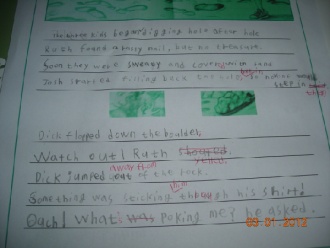 The Burton kids began digging hole after hole
Ruth found a rusty nail, but no treasure.
Soon they were sweaty and covered with sand
Josh started filling back the hole, so no one would
begin
step in
Dick flopped down the boulder,
Watch out! Ruth shouted.
Dick jumped out of the rock.
Something was sticking through his shirt!
Ouch! What was poking me? he asked.
09.01.2012